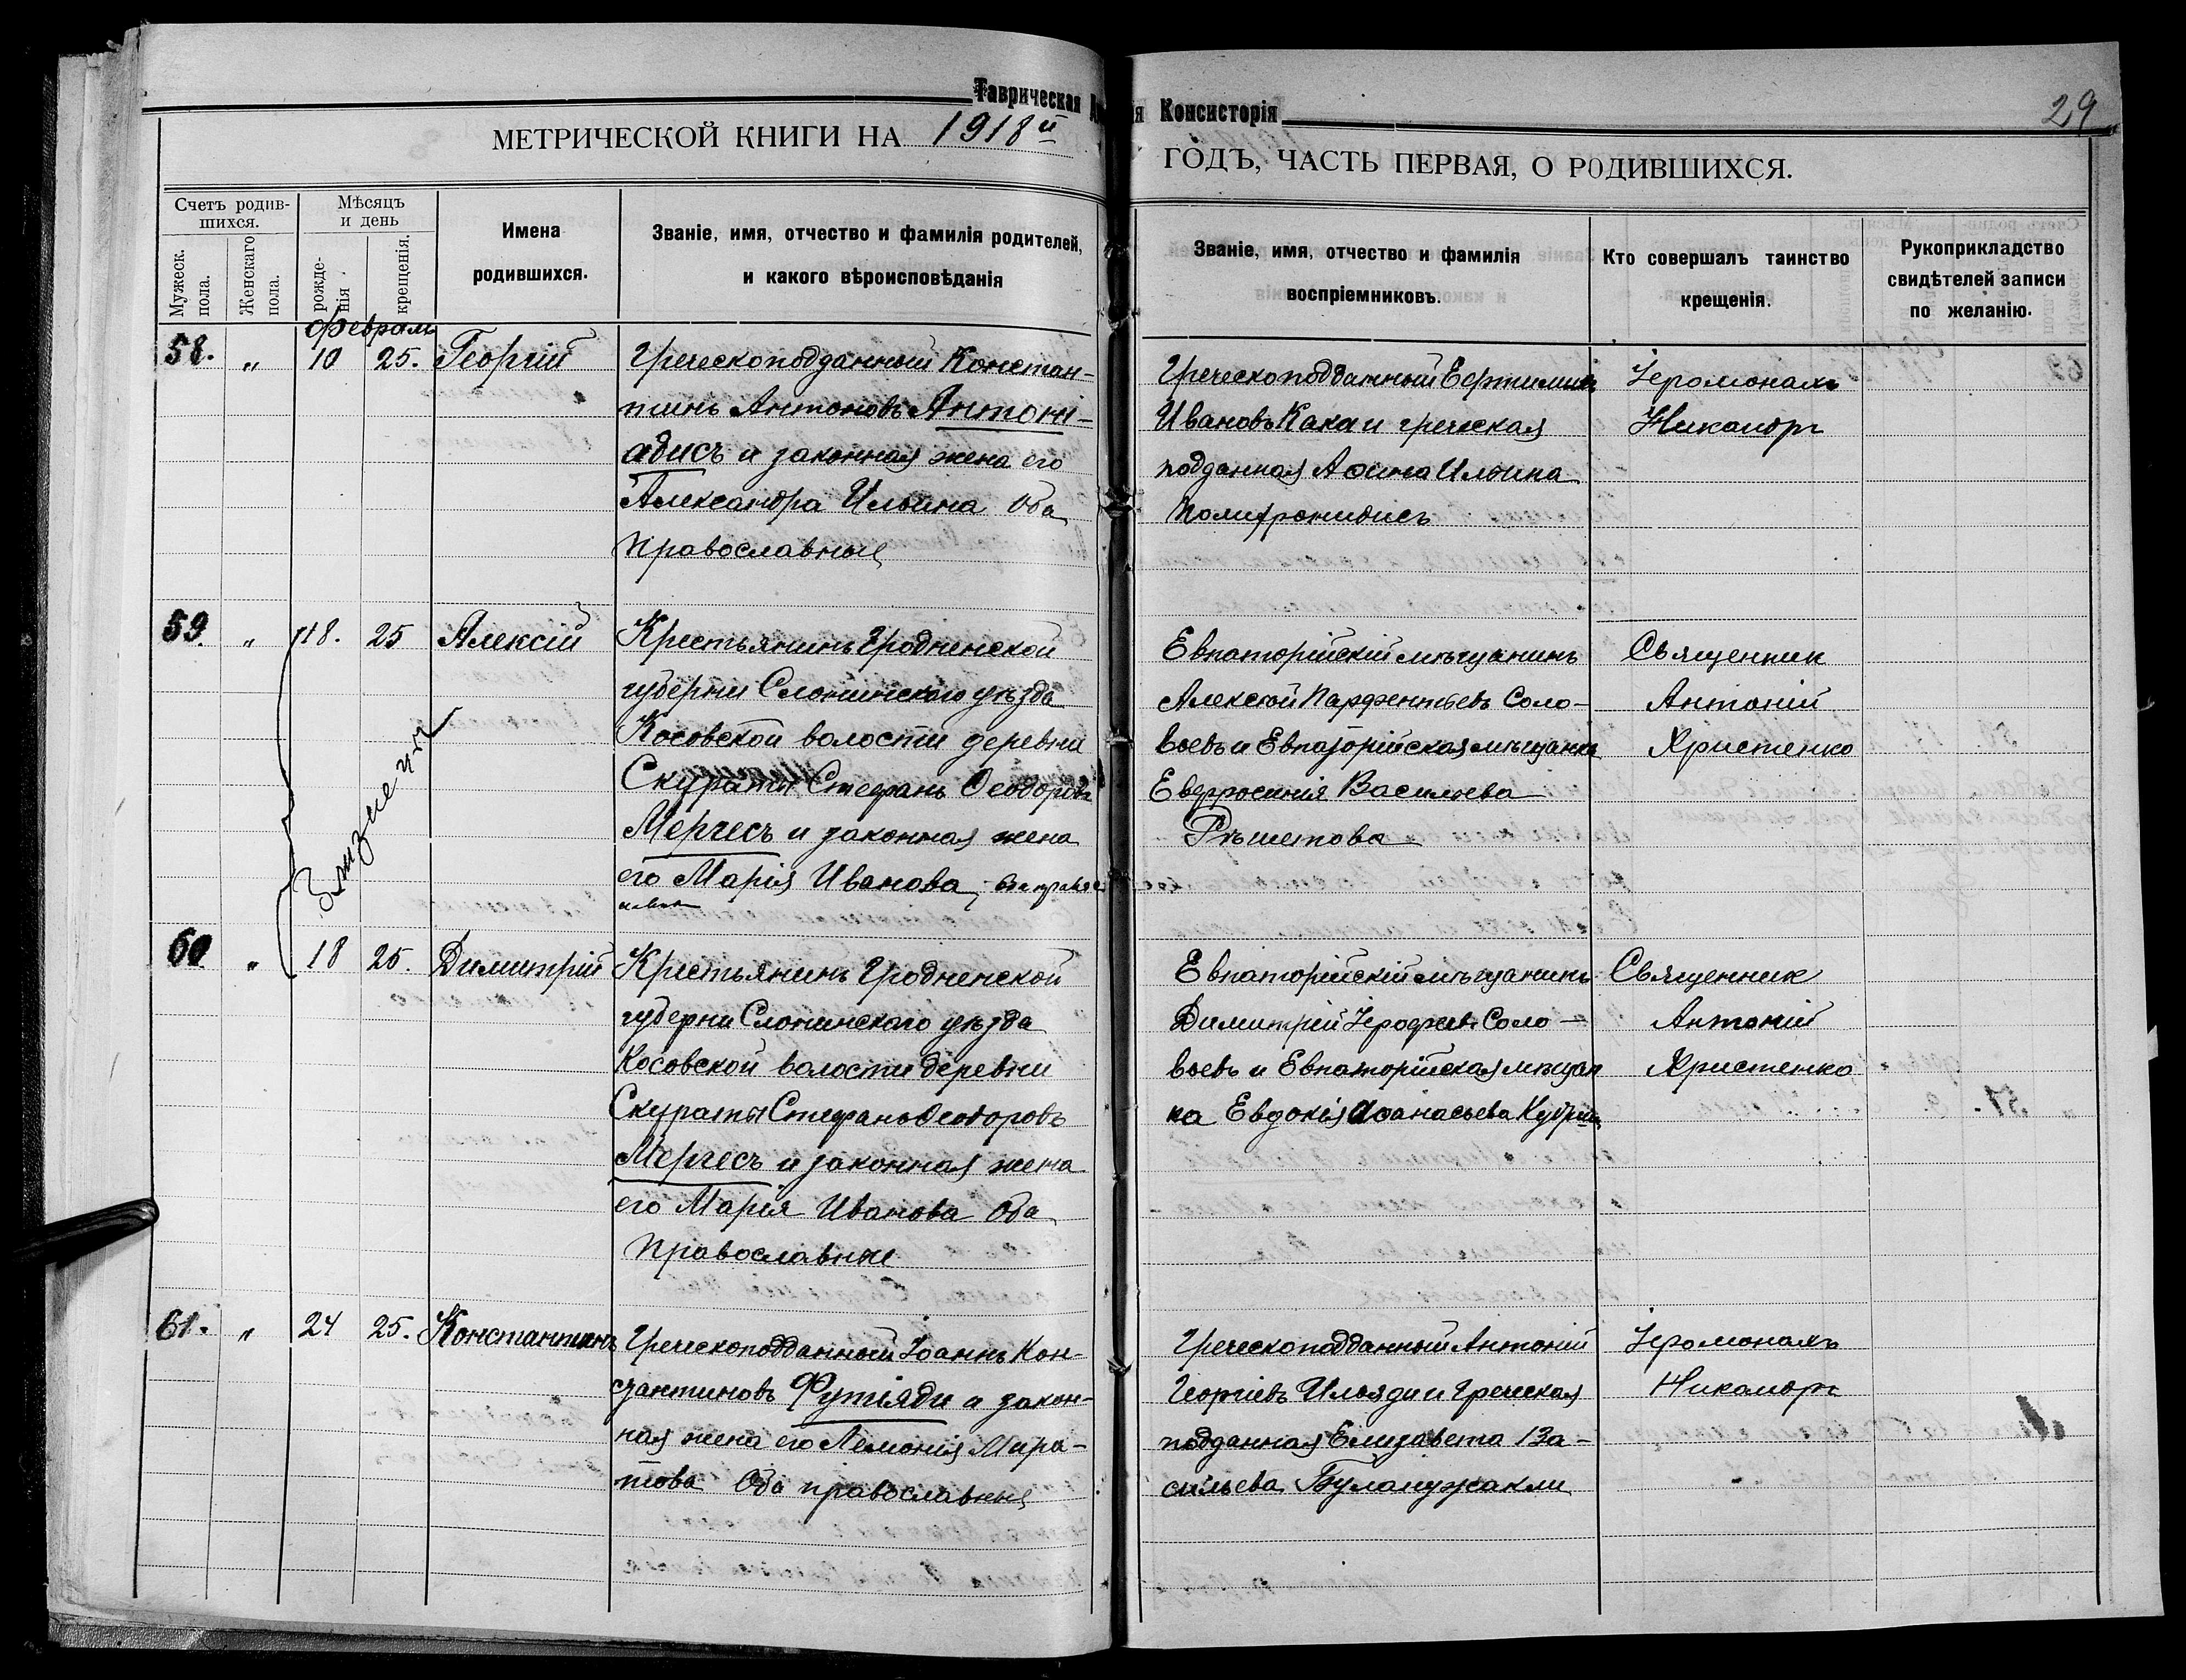 Таврическая
я Консисторія
29
МЕТРИЧЕСКОЙ КНИГИ НА 1918й
ГОДЪ, ЧАСТЬ ПЕРВАЯ, О РОДИВШИХСЯ.
Счетъ родив-
шихся.
Мужеск.
пола.
Женскаго
пола.
Мѣсяцъ
и день
рожде-
нія
крещенія.
Имена
родившихся.
Званіе, имя, отчество и фамилія родителей,
и какого вѣроисповѣданія
Званіе, имя, отчество и фамилія
воспріемниковъ.
Кто совершалъ таинство
крещенія.
Рукоприкладство
свидѣтелей записи
по желанію.
58. " 10 25. Георгій
Греческоподданный Констан-
тинъ Антоновъ Антоні-
адисъ и законная жена его
Александра Ильина Оба
Православные
Греческоподданный
Ивановъ Кака и греческая
подданная Аѳина Ильина
Полихронидисъ
Іеромонахъ
Никаноръ
59. " 18. 25 Алексій
Близнецы
Крестьянинъ Гродненской
губерни Слонимскаго уѣзда
Косовской волости деревни
Скураты Стефанъ Ѳеодоровъ
Мерчесъ и законная жена
его Марія Иванова,
Евпаторійскій мѣщанинъ
Алексій Парфентьевъ Соло-
вьевъ и Евпаторійская мѣщанка
Евфросинія Васильева
Рѣшетова
Священник
Антоній
Христенко
60 " 18 25. Димитрій
Крестьянинъ Гродненской
губерни Слонимскаго уѣзда
Косовской волости деревни
Скураты Стефанъ Ѳеодоровъ
Мерчесъ и законная жена
его Марія Иванова Оба
Православные
Евпаторійскій мѣщанинъ
Димитрій Іерофеевъ Соло-
вьевъ и Евпаторійская мѣщан
ка Евдокія Аѳанасьева
Священник
Антоній
Христенко
61. " 24 25. Константинъ
Греческоподданный Іоаннъ Кон-
стантиновъ Футіяди и закон-
ная жена его Лемонія Мура-
това Оба православные
Греческоподданный Антоній
Георгіевъ Ильяди и Греческая
подданная Елизавета Ва-
сильева
Іеромонахъ
Никаноръ